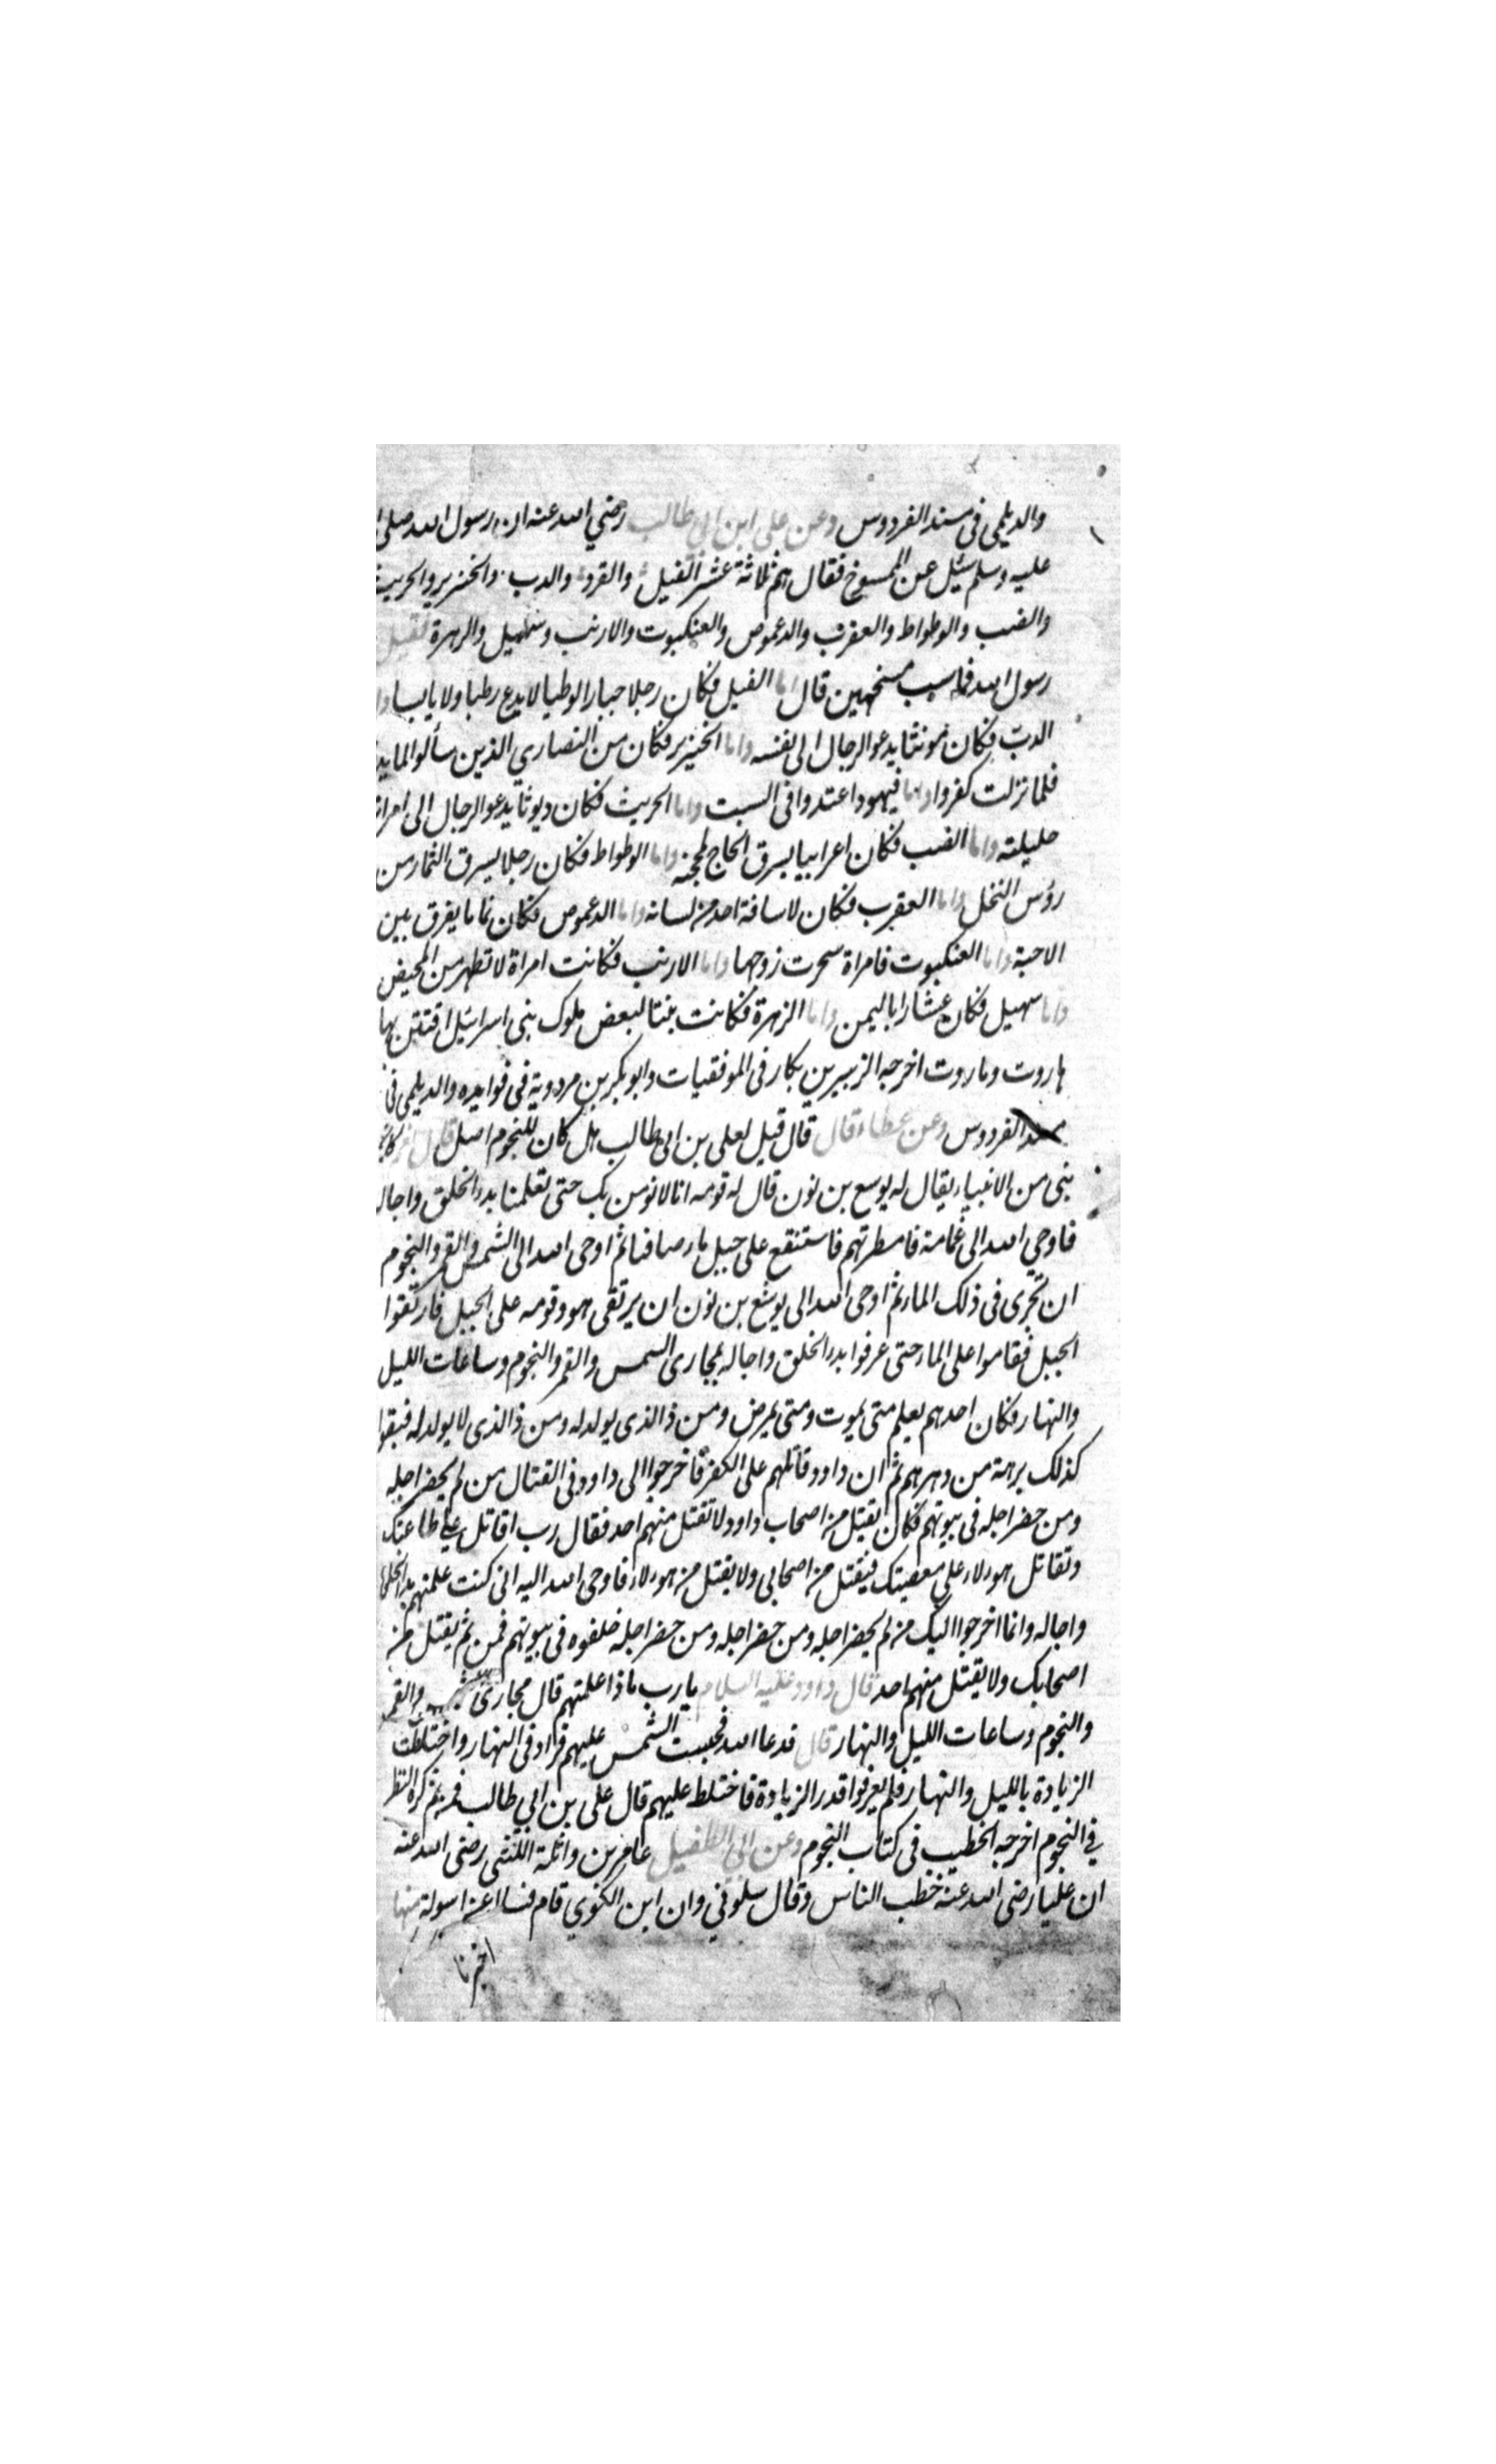 والديلمى فى مسند الفردوس وعن على ابن ابي طالب رضي الله عنه ان رسول الله صلى ا
عليه وسلم سئل عن المسوخ فقال هم ثلاثة عشر الفيل والقرد والدب والخنزير والحريث
والضب والوطواط والعقرب والدعموص والعنكبوت والارنب وسهيل والزهرة فقيل
رسول الله فما سبب مسخهن قال اما الفيل فكان رجلا جبارا لوطيا لا يدع رطبا ولا يابسا وا
الدب فكان مونثا يدعو الرجال الى نفسه واما الخنزير فكان من النصاري الذين سألوا المايد
فلما نزلت كفروا واما فيهود اعتدوا فى السبت واما الحريث فكان ديوثا يدعو الرجال الى امراة
حليلته واما الضب فكان اعرابيا يسرق الحاج بمحجنه واما الوطواط فكان رجلا يسرق الثمار من
رؤس النخل واما العقرب فكان لا سافة احد من لسانه واما الدعموص فكان نماما يفرق بين
الاحبة واما العنكبوت فامراة سحرت زوجها واما الارنب فكانت امراة لا تطهر من المحيض
واما سهيل فكان عشارا باليمن واما الزهرة فكانت بنتا لبعض ملوك بنى اسرائيل افتتن بها
هاروت وماروت اخرجه الزبير بن بكار فى الموفقيات وابو بكر بن مردوية فى فوايده والديلمى فى
مسند الفردوس وعن عطاء قال قال قيل لعلى بن ابى طالب هل كان للنجوم اصل قال نعم كان
نبى من الانبياء يقال له يوسع بن نون قال له قومه انا لا نومن بك حتى تعلمنا بدء الخلق واجاله
فاوحي الله الى غمامة فامطرتهم فاستنقع على جبل ماء صافيا ثم اوحى الله الى الشمس والقمر والنجوم
ان تجرى فى ذلك الماء ثم اوحى الله الى يوشع بن نون ان يرتقى هو وقومه على الجبل فارتقوا
الجبل فقاموا على الماء حتى عرفوا بدء الخلق واجاله بمجارى الشمس والقمر والنجوم وساعات الليل
والنهار فكان احدهم يعلم متى يموت ومتى يمرض ومن ذا الذى يولد له ومن ذا الذى لا يولد له فبقوا
كذلك برهة من دهرهم ثم ان داود قاتلهم على الكفر فاخرجوا الى داود فى القتال من لم يحضر اجله
ومن حضر اجله فى بيوتهم فكان يقتل من اصحاب داود ولا تقتل منهم احد فقال رب اقاتل على طاعتك
وتقاتل هولاء على معصيتك فيقتل من اصحابي ولا يقتل من هولاء فاوحى الله اليه انى كنت علمتهم بدء الخلق
واجاله وانما اخرجوا اليك من لم يحضر اجله ومن حضر اجله ومن حضر اجله خلفوه فى بيوتهم فمن ثم يقتل من
اصحابك ولا يقتل منهم احد قال داود عليه السلام يا رب ماذا علمتهم قال مجارى الشمس والقمر
والنجوم وساعات الليل والنهار قال فدعا الله فحبست الشمس عليهم فزاد فى النهار واختلطت
الزيادة بالليل والنهار فلم يعرفوا قدر الزيادة فاختلط عليهم قال على بن ابي طالب فمن ثم كره النظر
في النجوم اخرجه الخطيب فى كتاب النجوم وعن ابي الطفيل عامر بن واثلة الليثى رضى الله عنه
ان عليا رضى الله عنه خطب الناس وقال سلوني وان ابن الكوي قام فسا اعن اسولة منها
اخبرنا